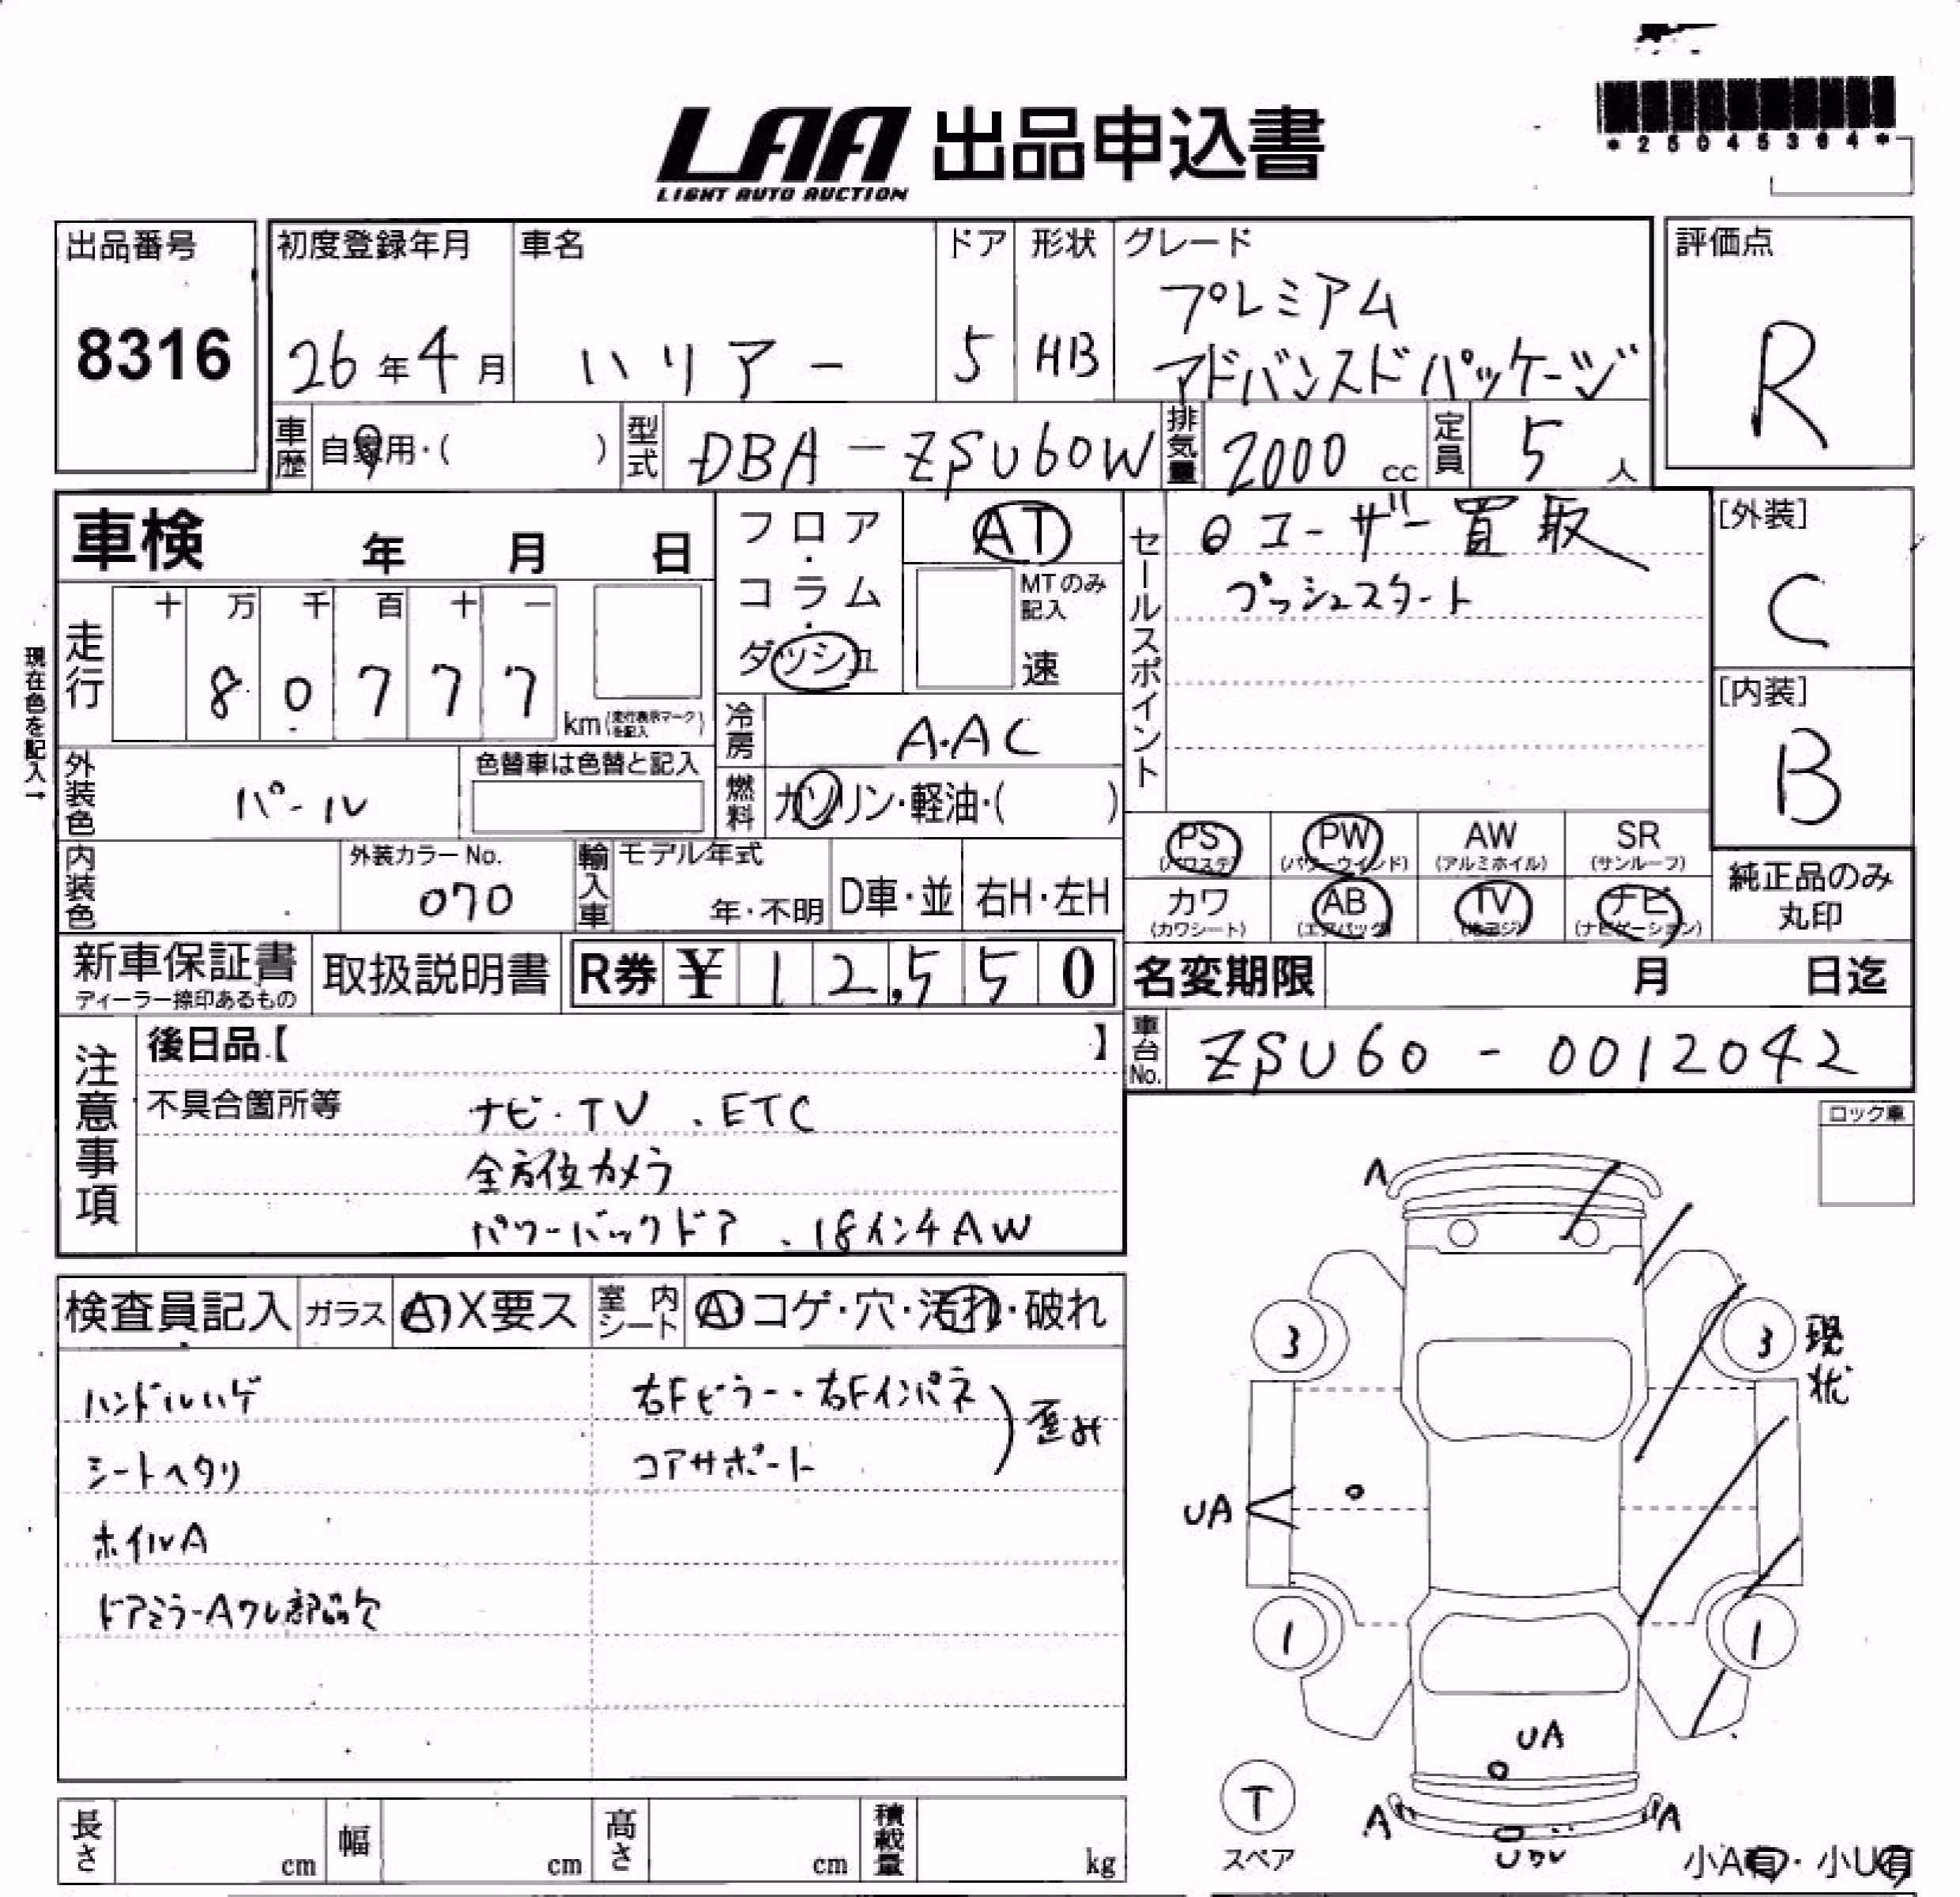 LAA 出品申込書
LIGHT AUTO AUCTION
*25045364*
出品番号
8316
初度登録年月
26年4月
車名
ハリアー
ドア
5
形状
HB
グレード
プレミアム
アドバンスドパッケージ
評価点
R
車歴
自家用・( )
型式
DBA-ZSU60W
排気量
2000 cc
定員
5 人
車検 年 月 日
フロア・コラム・ダッシュ
AT
MTのみ記入
速
セールスポイント
ユーザー買取
プッシュスタート
[外装]
C
[内装]
B
現在色を記入→
走行
十 万 千 百 十 一
8 0 7 7 7
km(走行表示マークを記入)
冷房
A.AC
外装色
パール
色替車は色替と記入
燃料
ガソリン・軽油・( )
内装色
外装カラーNo.
070
輸入車
モデル年式
年・不明
D車・並
右H・左H
PS
(パワステ)
PW
(パワーウインド)
AW
(アルミホイル)
SR
(サンルーフ)
カワ
(カワシート)
AB
(エアバッグ)
TV
ナビ
(ナビゲーション)
純正品のみ
丸印
新車保証書
ディーラー捺印あるもの
取扱説明書
R券 ¥12,550
名変期限 月 日迄
車台No.
ZSU60-0012042
注意事項
後日品【 】
不具合箇所等
ナビ・TV 、ETC
全方位カメラ
パワーバックドア 、18インチAW
ロック車
検査員記入
ガラス
A・X要ス
室内シート
A・コゲ・穴・汚れ・破れ
ハンドルハゲ
シートヘタリ
ホイルA
ドアミラーAワレ部品欠
右Fピラー・右Fインパネ
コアサポート
歪み
A
3
3
現状
UA
1
1
UA
T
スペア
A
A
小A有・小U有
長さ cm
幅 cm
高さ cm
積載量 kg